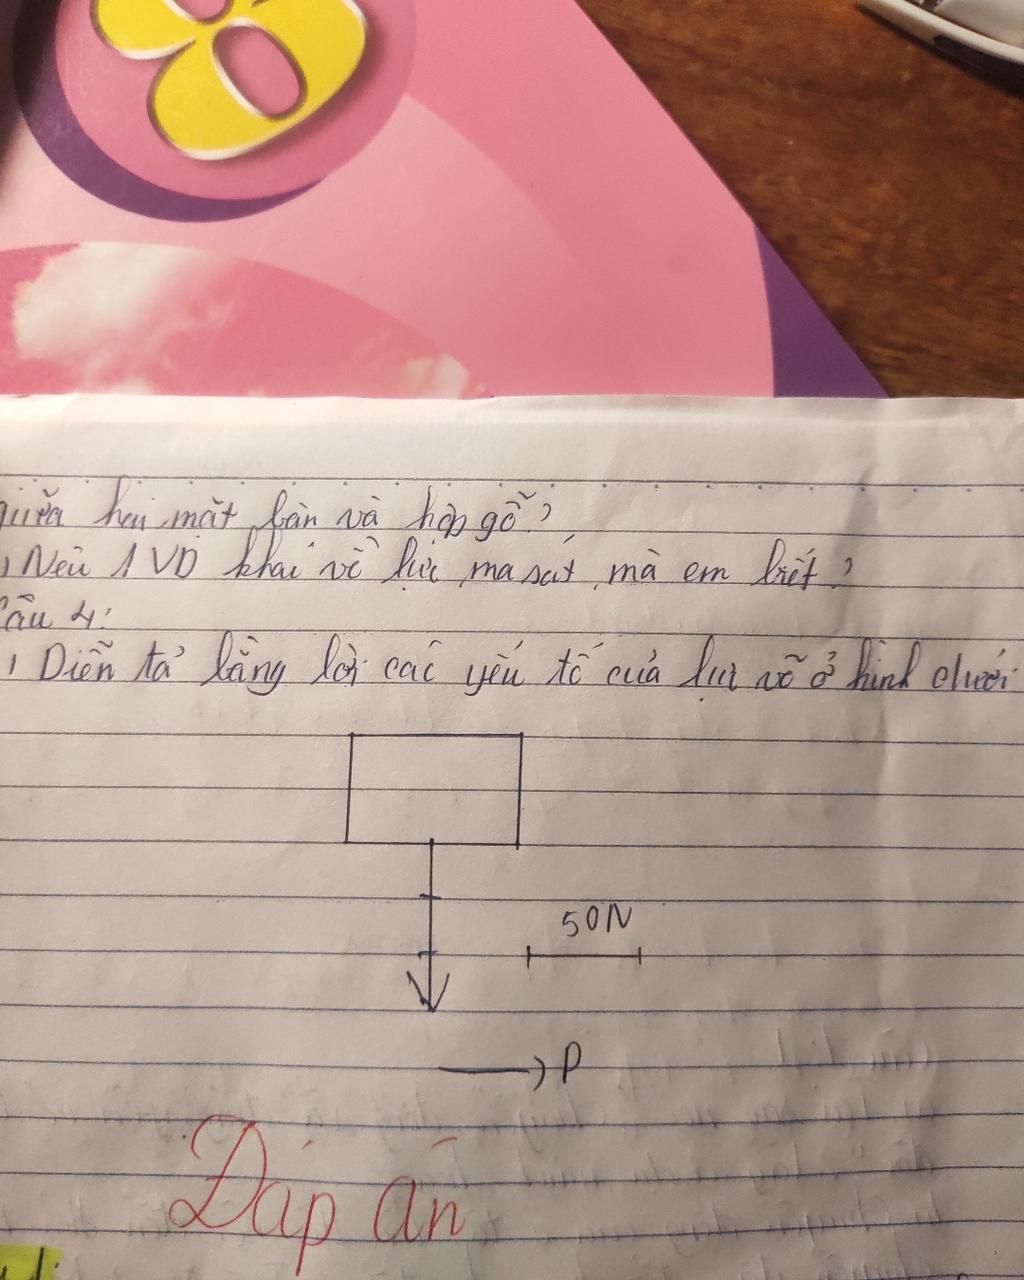 8
giữa hai mặt bàn và hộp gỗ?
, Nêu 1 VD khái về lực ma sát mà em biết?
Câu 4:
, Diễn tả bằng lời các yếu tố của lực vẽ ở hình dưới
50N
P
Đáp án